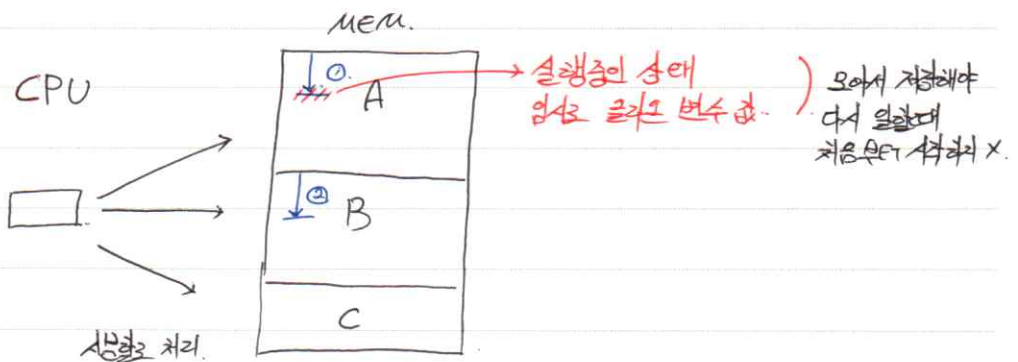 MEM.
CPU
①.
A
실행중인 상태
임시로 변수 값.
모아서 저장해야
다시 일할때
처음부터 시작하지 X.
②
B
C
시분할로 처리.